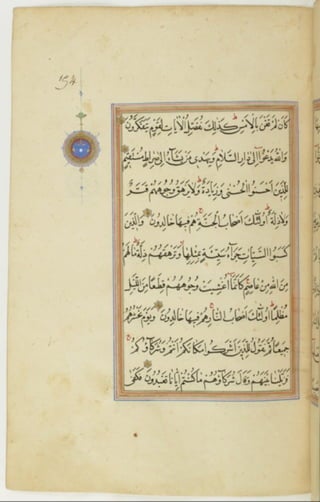 154
كَأَنْ لَمْ تَغْنَ بِالْأَمْسِ كَذَلِكَ نُفَصِّلُ الْآيَاتِ لِقَوْمٍ يَتَفَكَّرُونَ
وَاللَّهُ يَدْعُو إِلَى دَارِ السَّلَامِ وَيَهْدِي مَنْ يَشَاءُ إِلَى صِرَاطٍ مُسْتَقِيمٍ
لِلَّذِينَ أَحْسَنُوا الْحُسْنَى وَزِيَادَةٌ وَلَا يَرْهَقُ وُجُوهَهُمْ قَتَرٌ
وَلَا ذِلَّةٌ أُولَئِكَ أَصْحَابُ الْجَنَّةِ هُمْ فِيهَا خَالِدُونَ وَالَّذِينَ
كَسَبُوا السَّيِّئَاتِ جَزَاءُ سَيِّئَةٍ بِمِثْلِهَا وَتَرْهَقُهُمْ ذِلَّةٌ مَا لَهُمْ
مِنَ اللَّهِ مِنْ عَاصِمٍ كَأَنَّمَا أُغْشِيَتْ وُجُوهُهُمْ قِطَعًا مِنَ اللَّيْلِ
مُظْلِمًا أُولَئِكَ أَصْحَابُ النَّارِ هُمْ فِيهَا خَالِدُونَ وَيَوْمَ نَحْشُرُهُمْ
جَمِيعًا ثُمَّ نَقُولُ لِلَّذِينَ أَشْرَكُوا مَكَانَكُمْ أَنْتُمْ وَشُرَكَاؤُكُمْ
فَزَيَّلْنَا بَيْنَهُمْ وَقَالَ شُرَكَاؤُهُمْ مَا كُنْتُمْ إِيَّانَا تَعْبُدُونَ فَكَفَى